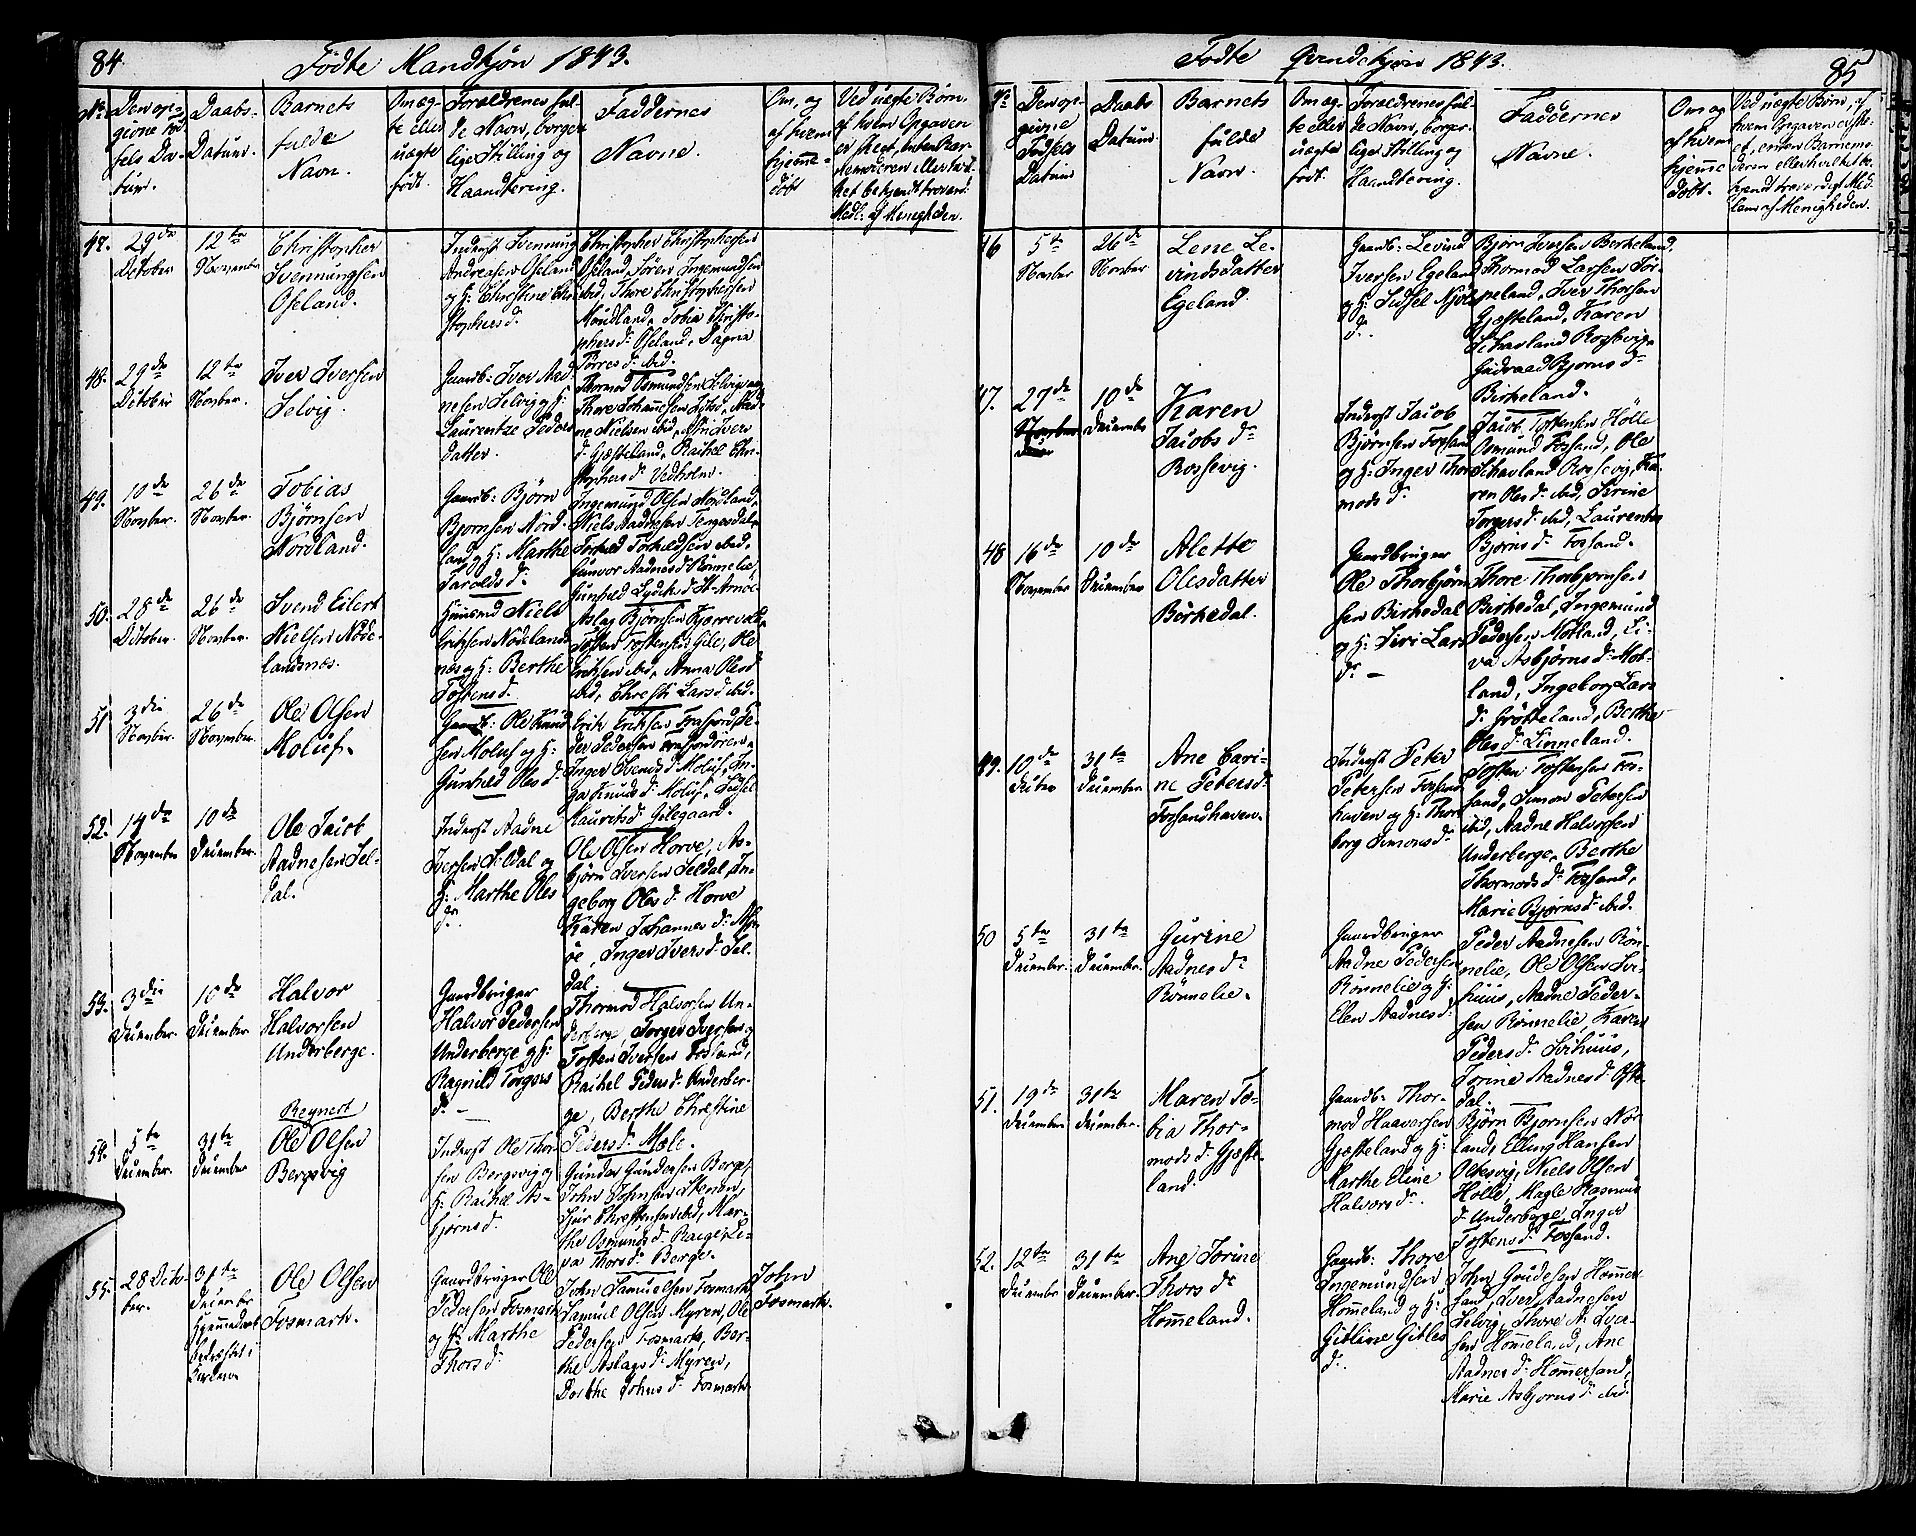 84
Fødte Mandkjøn 1843.
No.
Den opgivne Fødsels Datum.
Daabs-Datum.
Barnets fulde Navn.
Om ægte eller uægte født.
Forældrenes fulde Navn, borgerlige Stilling og Haandtering.
Faddernes Navne.
Om, og af hvem hjemmedøbt
Ved uægte Børn, af hvem Opgaven er skeet, enten Barnemoderen eller hvilket bekjendt troværd. Medl: af Menigheden.
47.
29de October
12te November
Christopher
Svennungsen
Oseland.
Inderst Svennung
Andreasen Oseland
og H: Christine Chri-
stophersd:
Christopher Christophersen
Oseland, Søren Ingemundsen
ibid, Thore Christophersen
Nordland, Tobia Christo-
phersd: Oseland, Dagna
Torresd: ibid.
48.
29de October
12te Novber.
Iver Iversen
Selvig.
Gaardb: Iver Aad-
nesen Selvig og H:
Laurentze Peders
datter.
Thormod Osmundsen Selvig og
Thore Johannesen ibid, Aad-
ne Nielsen ibid, Siri Ivers
d: Gjesteland, Rachel Chri-
stophersd: Vedholm.
49.
10de Novber.
26de Novber.
Tobias
Bjørnsen
Nordland.
Gaardb: Bjørn
Bjørnsen Nord-
land og H: Marthe
Taroldsd:
Ingemund Olsen Nordland,
Niels Aadnesen Tengesdal,
Torkild Torkildsen ibid,
Gunvor Aadnesd: Rønnelie,
Gunhild Lydersd:
50.
28de October.
26de Novber.
Svend Eilert
Nielsen Nøde-
landsnæs.
Huusmd Niels
Erichsen Nødelands
næs og H: Berthe
Tostensd:
Aslag Bjørnsen Kjærrevold,
Tosten Tostensen Gile, Ole
Erichsen ibid, Anna Olesd
ibid, Christi Larsd: ibid.
51
3die Novber.
26de November.
Ole Olsen
Moluf.
Gaardb: Ole Knud-
sen Moluf og H:
Gunhild Olesd:
Erik Eriksen Frafjord, Pe-
der Pedersen Frafjordøren,
Inger Svendsd: Moluf, In-
ga Knudsd: Moluf, Sidsel
Lauritsd: Gilegaard.
52.
14de November
10de December.
Ole Jacob
Aadnesen Sel-
dal.
Inderst Aadne
Iversen Seldal og
H: Marthe Oles
dr.
Ole Olsen Horve, As-
bjørn Iversen Seldal, In-
geborg Olesd: Horve
Karen Johannesd:
Inger Iversd: Sel-
dal.
53.
3die December.
10de December.
Halvor
Halvorsen
Underberge.
Gaardbruger
Halvor Pedersen
Underberge og H:
Ragnild Torgers
d: —
Thormod Halvorsen Un-
derberge, Torger Iversen og
Tosten Iversen Fosland,
Rachel Pedersd: Underber-
ge, Berthe Christine
Pedersd: Mole.
54.
5te December.
31te December
Reynert
Ole Olsen
Bergsvig
Inderst Ole Thor-
sen Bergsvig og
H: Rachel As-
bjørnsd:
Gunder Gundersen Berge,
John Johnsen Stenen,
Sjur Christensen ibid, Mar-
the Osmundsd: Ræge, Le-
va Thorsd: Berge.
55.
28 Octo-
ber.
31te
December
Hjemmedaab
bekræftet i
Kirken.
Ole Olsen
Fosmark.
Gaardbruger Ole
Pedersen Fosmark
og H: Marthe
Thorsd:
John Samuelsen Fosmark,
Samuel Olsen Myren, Ole
Pedersen Fosmark, Ber-
the Aslagsd: Myren,
Dorthe Johnsd: Fosmark
John
Fosmark.
85
Fødte Qvindekjøn 1843.
No.
Den opgivne Fødsels Datum
Daabs Datum.
Barnets fulde Navn.
Om ægte eller uægte født.
Forældrenes fulde Navn, borgerlige Stilling og Haandtering.
Faddernes Navne.
Om og af hvem hjemmedøbt.
Ved uægte Børn, af hvem Opgaven er skeet, enten Barnemoderen eller hvilket bekjendt troværdigt Medlem af Menigheden.
46
5te Novber
26de Novber
Lene Le-
vindsdatter
Egeland.
Gaardb: Levind
Iversen Egeland
og H: Sidsel Njøls
d:
Bjørn Iversen Berkeland,
Thormod Larsen Tør-
peland, Iver Thorsen
Gjesteland, Karen
Schavland Rossevig,
Gudraad Bjørnsd:
Birkeland.
47.
27de Novber
10de December
Karen
Jacobsdr
Rossevig.
Inderst Jacob
Bjørnsen Fossand
og H: Inger Thor-
modsd:
Jacob Tostensen Hølle
Osmund Fossand, Ole
Schavland Rossevig, Ka-
ren Olesd: ibid, Sirine
Torgersd: ibid, Laurentse
Bjørnsd: Fossand.
48
16de November
10de December
Alette
Olesdatter
Birkedal.
Gaardbruger
Ole Thorbjørn-
sen Birkedal
og H: Siri Lars
dr —
Thore Thorbjørnsen
Birkedal, Ingemund
Pedersen Motland, Li-
va Asbjørnsd: Mot-
land, Ingeborg Lars
d: Grøtteland, Berthe
Olesd: Linneland.
49.
10de Decber
31te December.
Ane Cari-
ne Petersd:
Fossandhaven.
Inderst Peter
Petersen Fossand
haven og H: Thor-
borg Simonsd:
Tosten Tostensen Fos-
sand, Simon Petersen
ibid, Aadne Halvorsen
Underberge, Berthe
Thormodsd: Fossand,
Marie Bjørnsd: ibid.
50
5te December.
31te December.
Gurine
Aadnesdr
Rønnelie.
Gaardbruger
Aadne Pedersen
Rønnelie og H:
Elen Aadnesd:
Peder Aadnesen Røn-
nelie, Ole Olsen Svi-
huus, Aadne Peder-
sen Rønnelie, Karen
Pedersd: Svihuus,
Torine Aadnesd: Ofte-
dal.
51.
19de December
31te December.
Maren To-
bia Thor-
modsd: Gjeste-
land.
Gaardb: Thor-
mod Haaversen
Gjesteland og H:
Marthe Eline
Halvorsd:
Bjørn Bjørnsen Nor-
land, Elling Hansen
Oltesvig, Niels Olsen
Holle, Magle Rasmus
d: Underberge, Inger
Tostensd: Fossand.
52.
12te December
31te December.
Ane Torine
Thorsdr
Hommeland.
Gaardb: Thore
Ingemundsen
Hommeland og H:
Gitline Gitles
d:
John Gaudesen Hommer-
sand, Iver Aadnesen
Selvig, Thore A: Iver-
sen Hommeland, Ane
Aadnesd: Hommersand,
Marie Asbjørnsd: ibid.